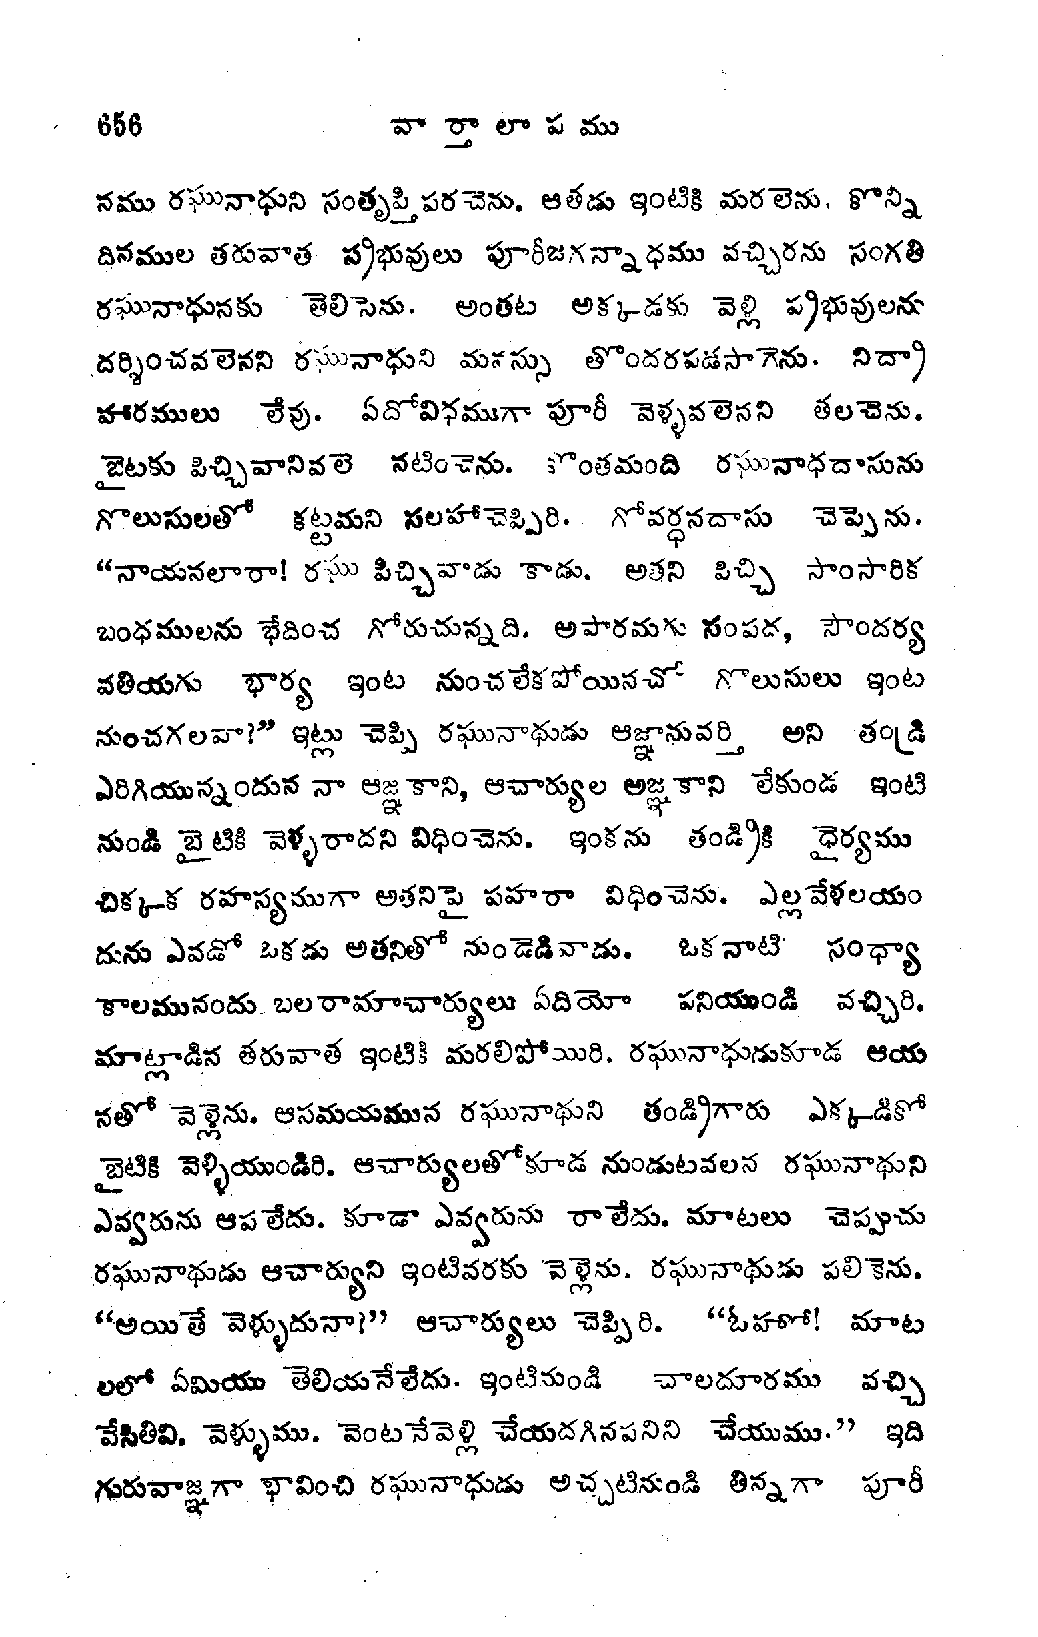 656 వార్తాలాపము
నము రఘునాధుని సంతృప్తిపరచెను. ఆతడు ఇంటికి మరలెను. కొన్ని
దినముల తరువాత ప్రభువులు పూరీజగన్నాధము వచ్చిరను సంగతి
రఘునాధునకు తెలిసెను. అంతట అక్కడకు వెళ్లి ప్రభువులను
దర్శించవలెనని రఘునాధుని మనస్సు తొందరపడసాగెను. నిద్రా
హారములు లేవు. ఏదోవిధముగా పూరీ వెళ్ళవలెనని తలచెను.
బైటకు పిచ్చివానివలె నటించెను. కొంతమంది రఘునాధదాసును
గొలుసులతో కట్టమని సలహాచెప్పిరి. గోవర్ధనదాసు చెప్పెను.
“నాయనలారా! రఘు పిచ్చివాడు కాడు. అతని పిచ్చి సాంసారిక
బంధములను భేదించ గోరుచున్నది. అపారమగు సంపద, సౌందర్య
వతియగు భార్య ఇంట నుంచలేకపోయినచో గొలుసులు ఇంట
నుంచగలవా?” ఇట్లు చెప్పి రఘునాథుడు ఆజ్ఞానువర్తి అని తండ్రి
ఎరిగియున్నందున నా ఆజ్ఞకాని, ఆచార్యుల అజ్ఞకాని లేకుండ ఇంటి
నుండి బైటికి వెళ్ళరాదని విధించెను. ఇంకను తండ్రికి ధైర్యము
చిక్కక రహస్యముగా అతనిపై పహరా విధించెను. ఎల్లవేళలయం
దును ఎవడో ఒకడు అతనితో నుండెడివాడు. ఒకనాటి సంధ్యా
కాలమునందు బలరామాచార్యులు ఏదియో పనియుండి వచ్చిరి.
మాట్లాడిన తరువాత ఇంటికి మరలిపోయిరి. రఘునాధుడుకూడ ఆయ
నతో వెళ్లెను. ఆసమయమున రఘునాథుని తండ్రిగారు ఎక్కడికో
బైటికి వెళ్ళియుండిరి. ఆచార్యులతోకూడ నుండుటవలన రఘునాథుని
ఎవ్వరును ఆపలేదు. కూడా ఎవ్వరును రాలేదు. మాటలు చెప్పుచు
రఘునాథుడు ఆచార్యుని ఇంటివరకు వెళ్లెను. రఘునాథుడు పలికెను.
“అయితే వెళ్ళుదునా?” ఆచార్యులు చెప్పిరి. “ఓహో! మాట
లలో ఏమియు తెలియనేలేదు. ఇంటినుండి చాలదూరము వచ్చి
వేసితివి. వెళ్ళుము. వెంటనేవెళ్లి చేయదగినపనిని చేయుము.” ఇది
గురువాజ్ఞగా భావించి రఘునాధుడు అచ్చటినుండి తిన్నగా పూరీ